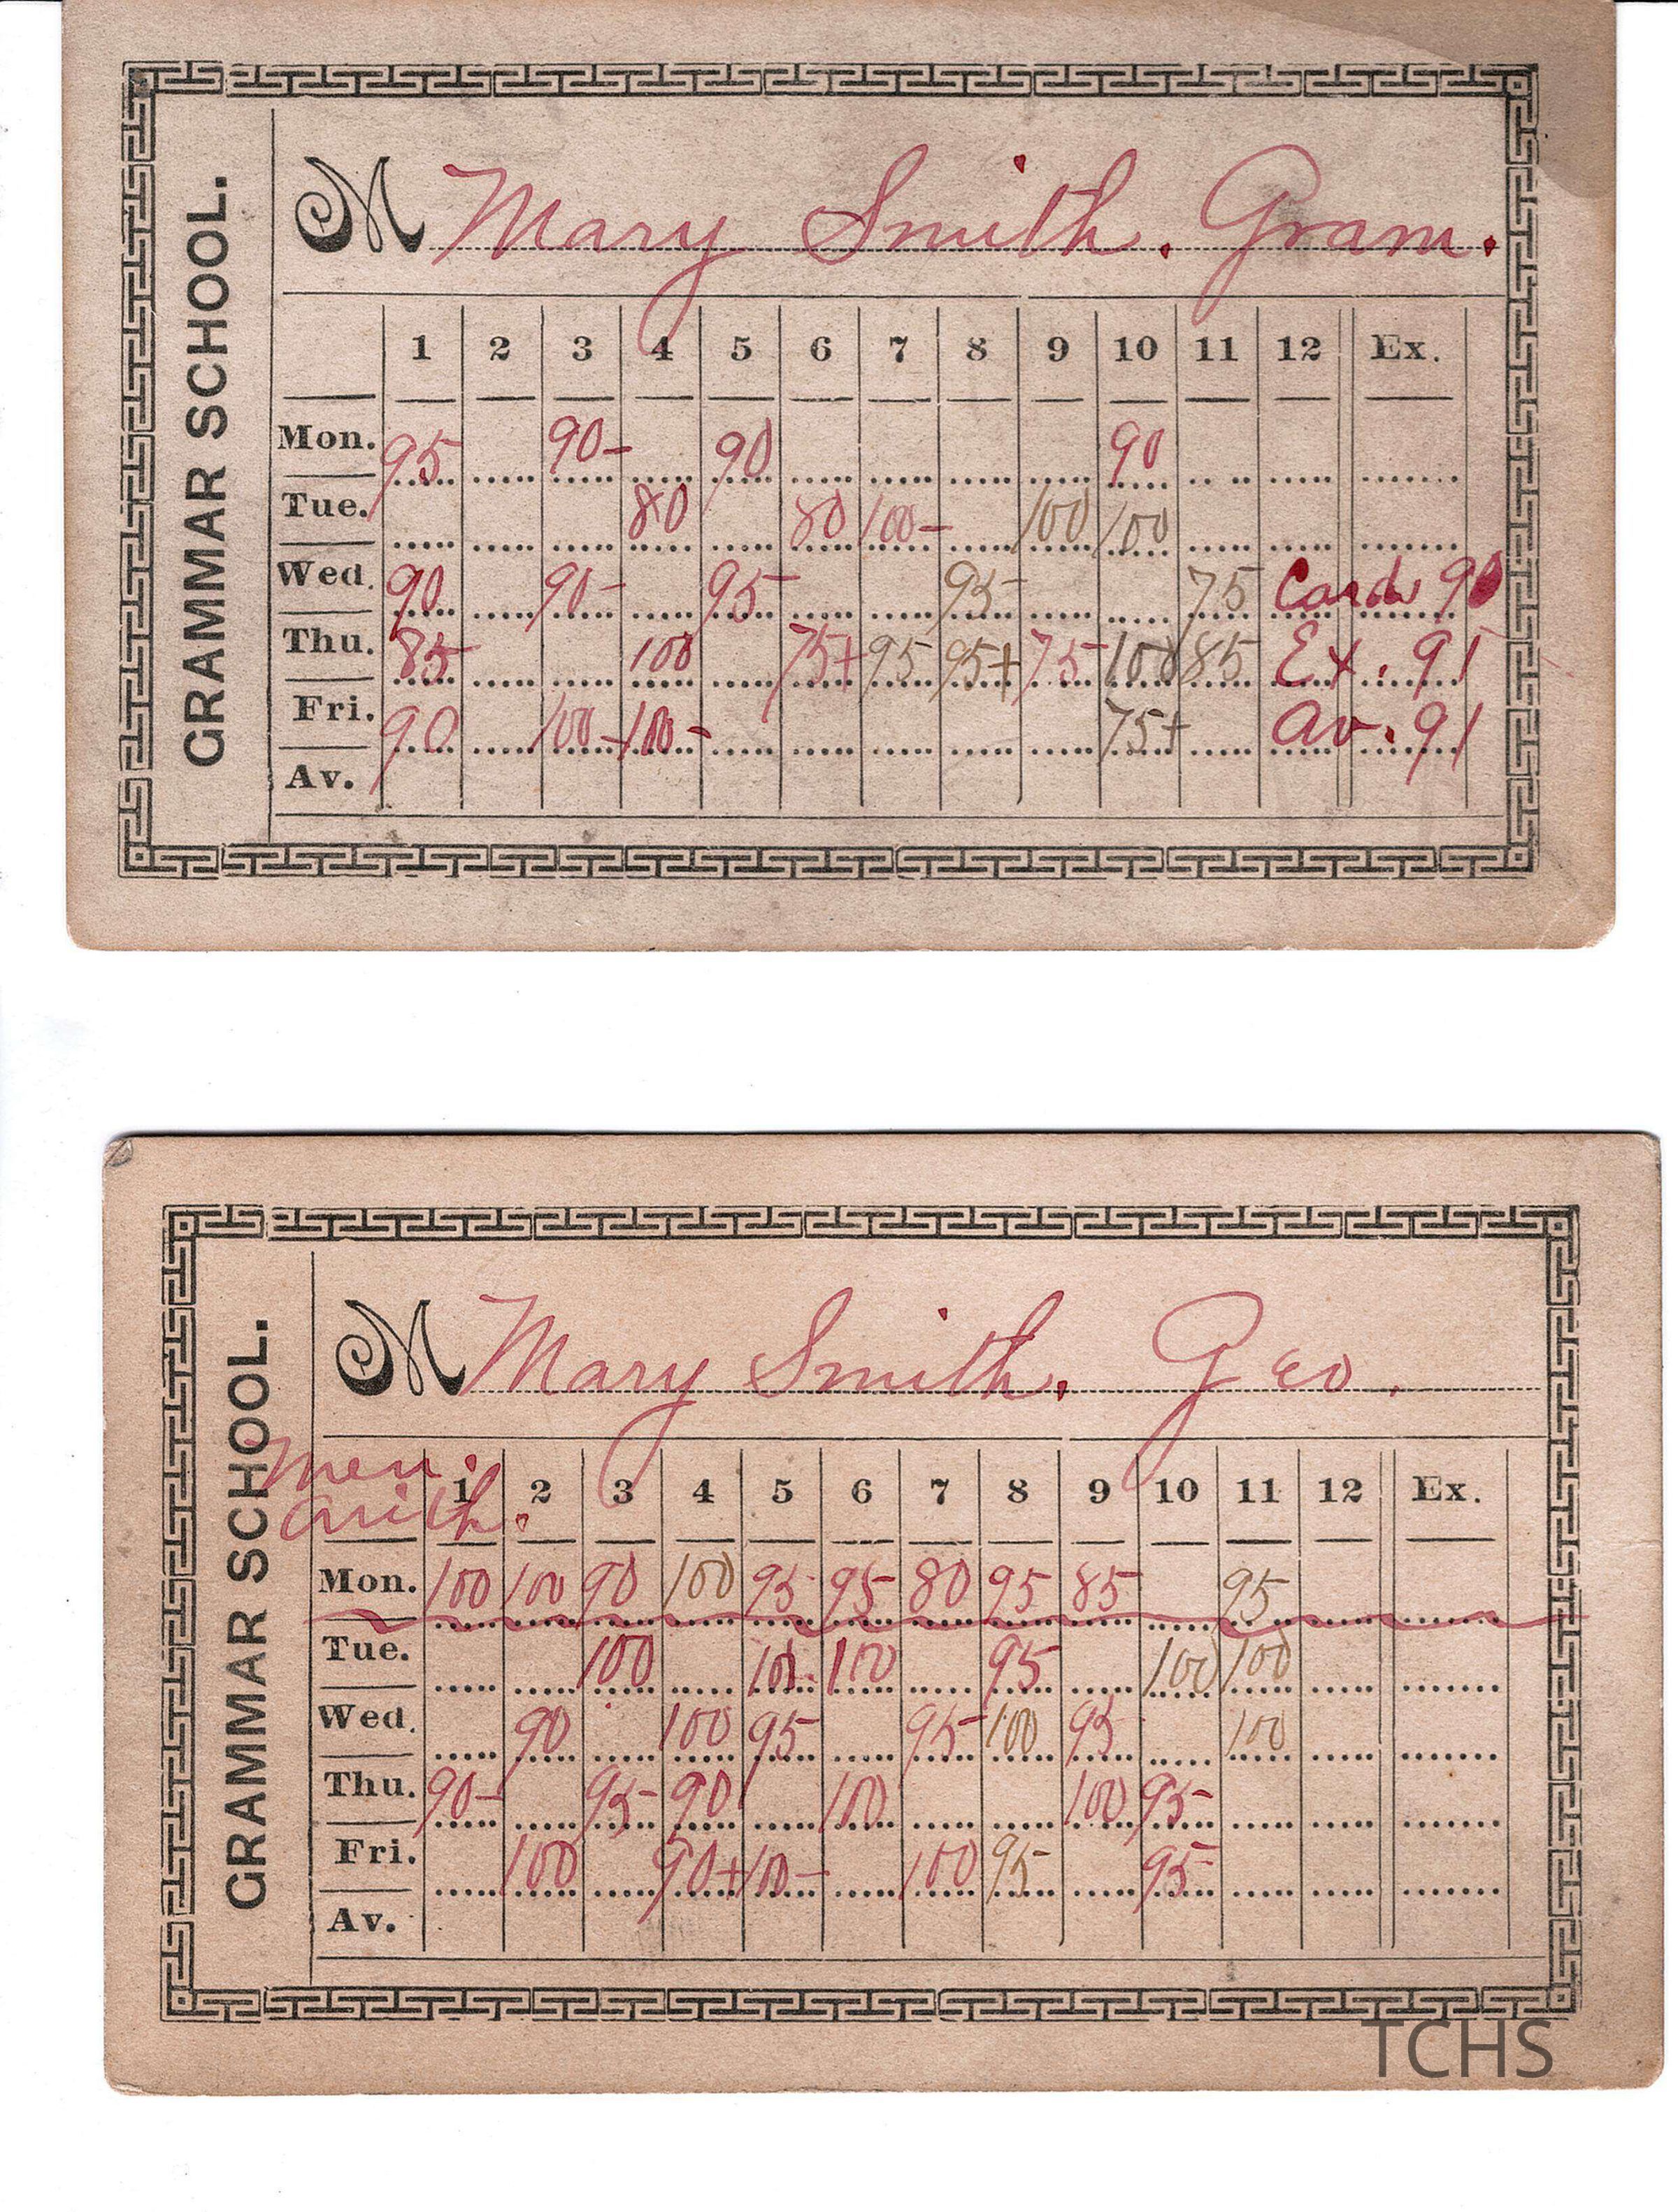 GRAMMAR SCHOOL.
M Mary Smith. Gram.
1 2 3 4 5 6 7 8 9 10 11 12 Ex.
Mon. 95 90- 90 90
Tue. 80 80 100- 100 100
Wed. 90 90- 95- 95- 75 Card 90
Thu. 85- 100 75+ 95 95+ 75- 100 85 Ex. 91
Fri. 90 100- 100- 75+ Av. 91
Av.
GRAMMAR SCHOOL.
M Mary Smith. Geo.
Men.
arith.
1 2 3 4 5 6 7 8 9 10 11 12 Ex.
Mon. 100 100 90 100 95- 95- 80 95 85- 95
Tue. 100 100 95- 100 100
Wed. 90 100 95 95- 100 95- 100
Thu. 90- 95- 90 100 100 95-
Fri. 100 90+ 100- 100 95- 95-
Av.
TCHS